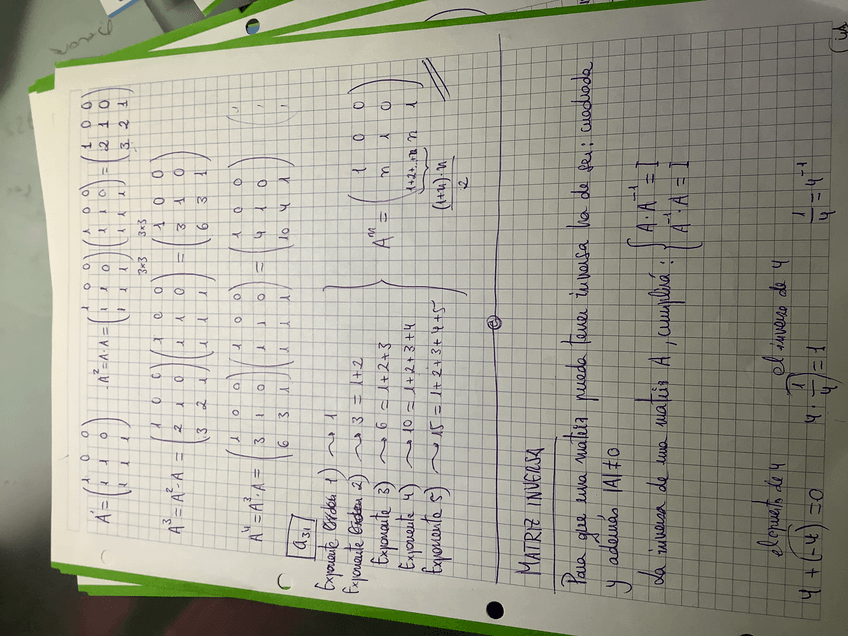 A¹ = (1 0 0 / 1 1 0 / 1 1 1) A² = A·A = (1 0 0 / 1 1 0 / 1 1 1) (1 0 0 / 1 1 0 / 1 1 1) = (1 0 0 / 2 1 0 / 3 2 1)
3x3 3x3
A³ = A²·A = (1 0 0 / 2 1 0 / 3 2 1) (1 0 0 / 1 1 0 / 1 1 1) = (1 0 0 / 3 1 0 / 6 3 1)
A⁴ = A³·A = (1 0 0 / 3 1 0 / 6 3 1) (1 0 0 / 1 1 0 / 1 1 1) = (1 0 0 / 4 1 0 / 10 4 1)
a₃₁
Exponente 1) → 1
Exponente 2) → 3 = 1+2
Exponente 3) → 6 = 1+2+3
Exponente 4) → 10 = 1+2+3+4
Exponente 5) → 15 = 1+2+3+4+5
Aⁿ = (1 0 0 / n 1 0 / 1+2+...+n n 1)
(1+n)·n / 2
MATRIZ INVERSA
Para que una matriz pueda tener inversa ha de ser: cuadrada
y además |A|≠0
La inversa de una matriz A, cumplirá: { A·A⁻¹ = I
A⁻¹·A = I
el opuesto de 4 el inverso de 4
4 + (-4) = 0 4 · 1/4 = 1 1/4 = 4⁻¹